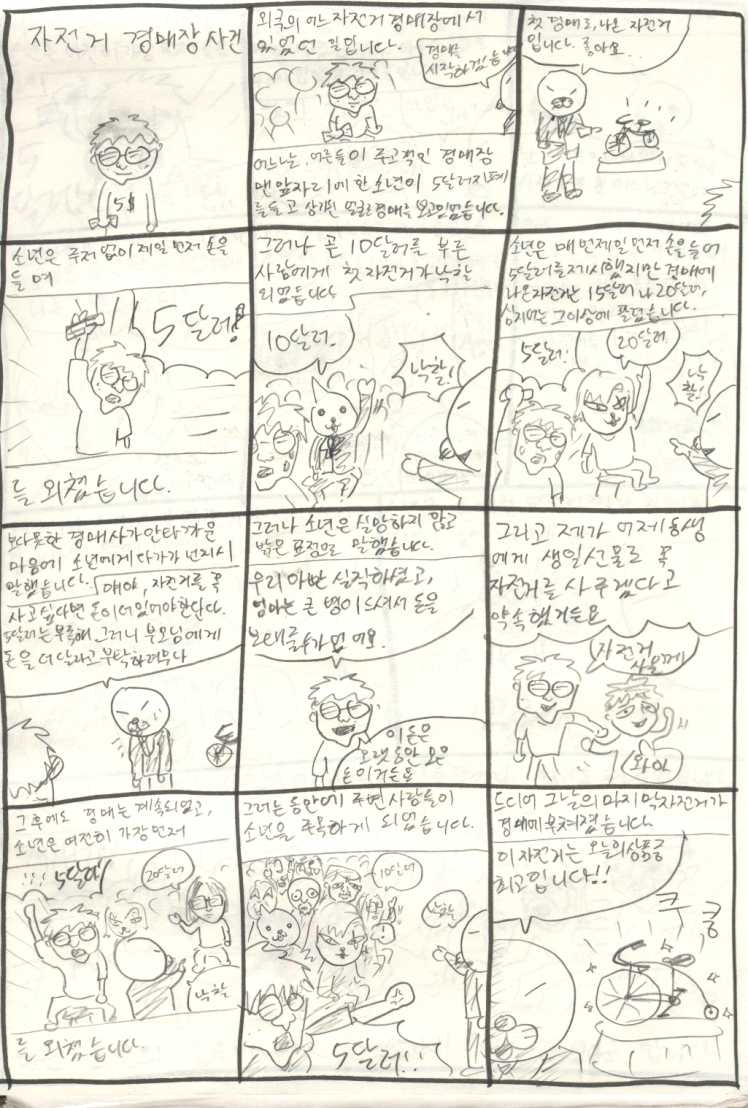 자전거 경매장 사건
5$
외국의 어느 자전거 경매장에서
있었던 일입니다.
경매를
시작하겠습니다
어느날, 어른들이 주고객인 경매장
맨 앞자리에 한 소년이 5달러 지폐
를 들고 상기된 얼굴로 경매를 보고 있었습니다.
첫 경매로 나온 자전거
입니다. 좋아요
소년은 주저 없이 제일 먼저 손을
들며
5달러!
를 외쳤습니다.
그러나 곧 10달러를 부른
사람에게 첫 자전거가 낙찰
되었습니다
10달러.
낙찰!
소년은 매번 제일 먼저 손을 들어
5달러를 제시했지만 경매에
나온 자전거는 15달러나 20달러,
심지어는 그 이상에 팔렸습니다.
5달러!
20달러
낙
찰!
보다못한 경매사가 안타까운
마음에 소년에게 다가가 넌지시
말했습니다.
얘야, 자전거를 꼭
사고싶다면 돈이 더 있어야 한단다.
5달러는 부족해 그러니 부모님에게
돈을 더 달라고 부탁하려무나
그러나 소년은 실망하지 않고
밝은 표정으로 말했습니다.
우리 아빤 실직하셨고,
엄마는 큰 병이 드셔서 돈을
보태줄수가 없어요.
이 돈은
오랫동안 모은
돈이거든요
그리고 제가 어제 동생
에게 생일선물로 꼭
자전거를 사주겠다고
약속했거든요
자전거
사올께
와아
그 후에도 경매는 계속되었고,
소년은 여전히 가장 먼저
!!! 5달러!
20달러
낙찰
를 외쳤습니다.
그러는 동안에 주변 사람들이
소년을 주목하게 되었습니다.
10달러
낙찰
5달러!!
드디어 그날의 마지막 자전거가
경매에 부쳐졌습니다.
이 자전거는 오늘의 상품중
최고입니다!!
쿠
쿵